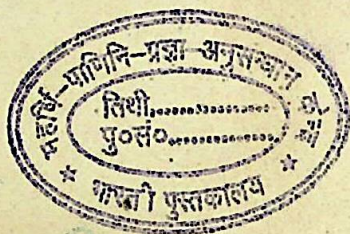 महर्षि-पाणिनि-प्रज्ञा-अनुसन्धान केन्द्र
तिथी....................
पु०सं०....................
* भारती पुस्तकालय *